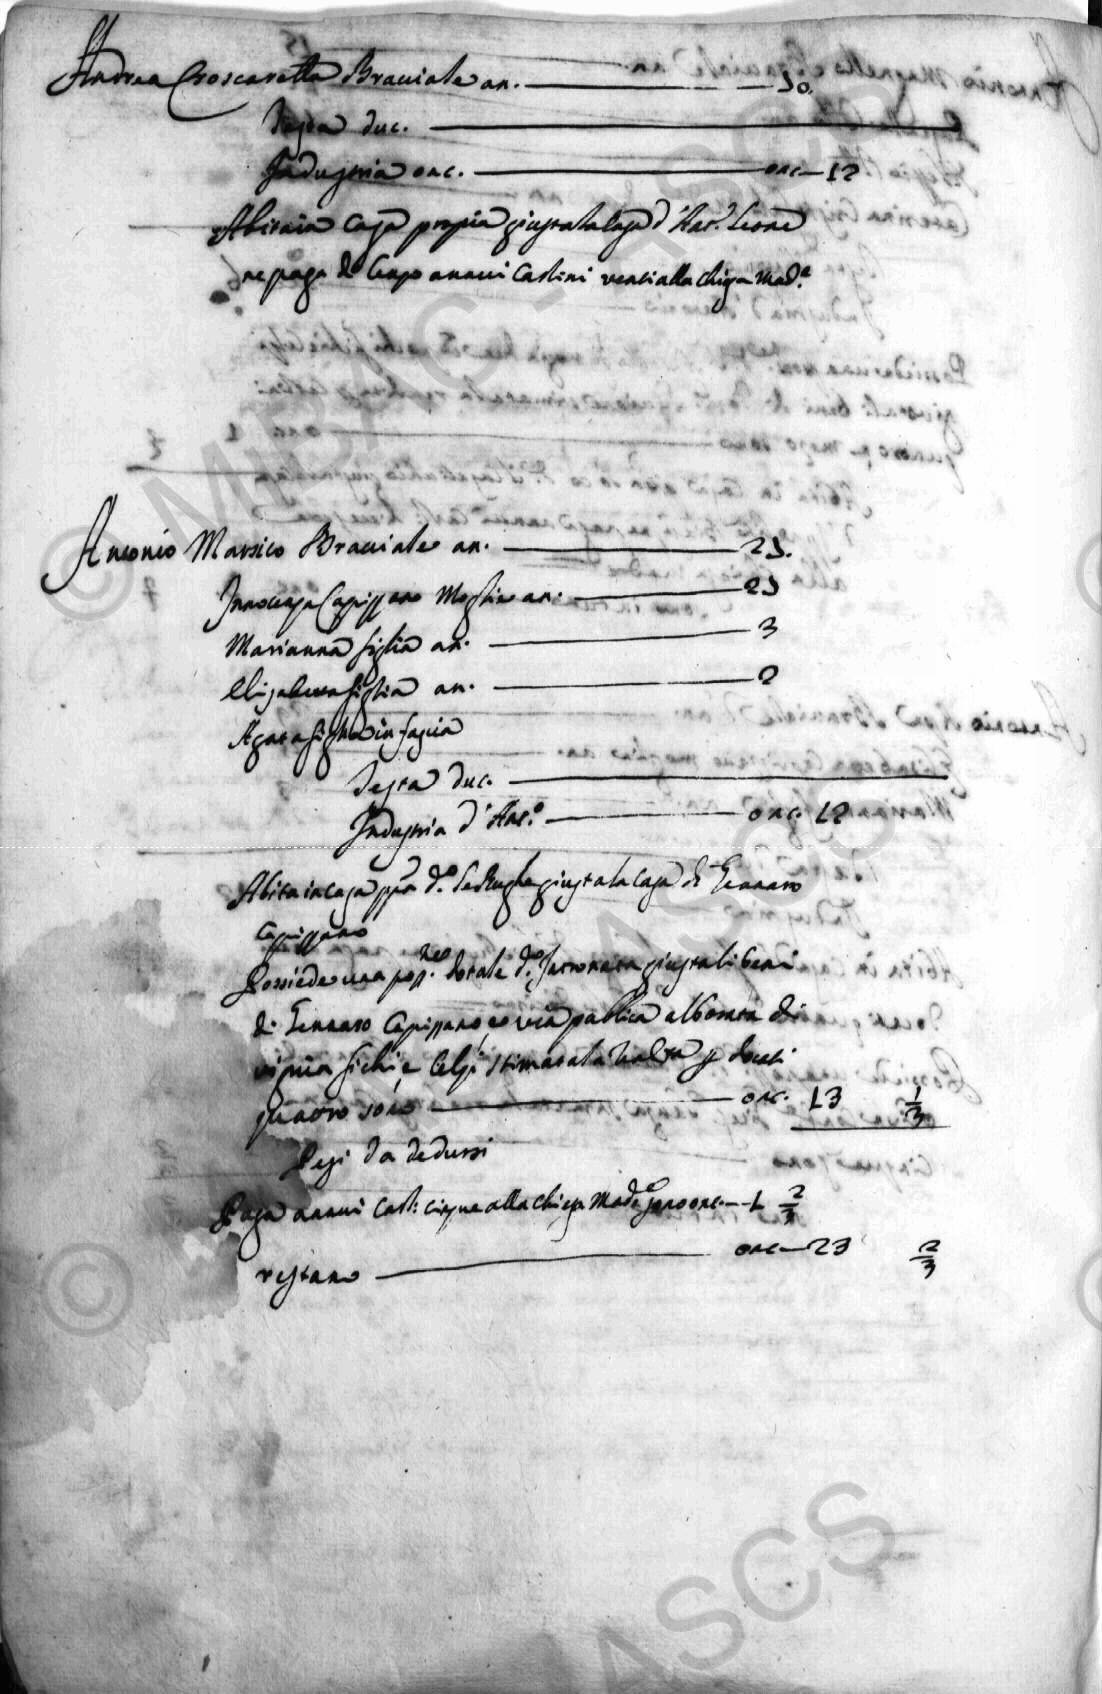 Andrea Croscarella Bracciale an. 50.
Testa duc.
Industria onc. onc. 12
Abita in casa propria giusta la casa d'Ant.º Leone
ne paga di Censo annui Carlini venti alla Chiesa Mad.e
Antonio Marsico Bracciale an. 25.
Innocenza Capissano Moglie an. 25
Marianna figlia an. 3
Elisabetta figlia an. 2
Agata figlia in fascia
Testa duc.
Industria d'Ant.º onc. 12
Abita in casa ppa d.º giusta la casa di Gennaro
Capissano
Possiede una poss.ne dotale d. giusta li beni
di Gennaro Capissano, e via publica alborata di
vigna fichi e Celsi stimata la rendita p docati
quattro sono onc. 13 1/3
Pesi da dedursi
Paga annui Carl: cinque alla Chiesa Mad.e sono onc. 1 2/3
restano onc. 23 2/3
© MIBAC - ASCS